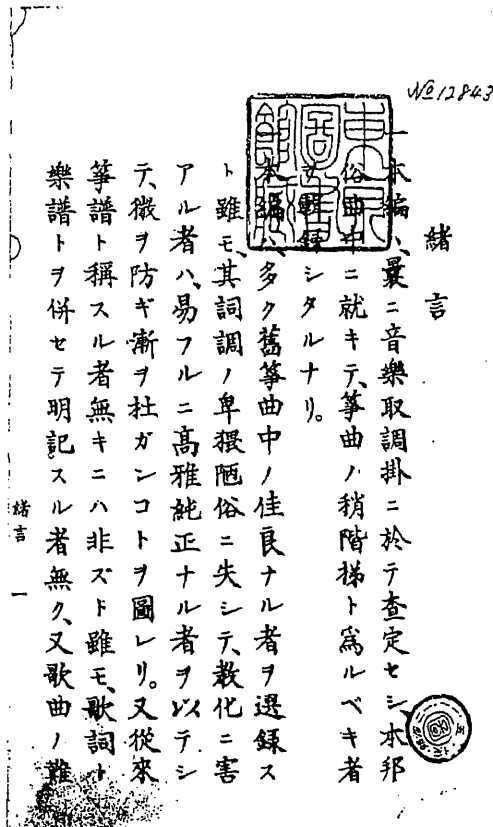 №12843
緒言
一本編ハ、曩ニ音樂取調掛ニ於テ查定セシ本邦
俗曲中ニ就キテ、箏曲ノ稍階梯ト爲ルベキ者
ヲ輯錄シタルナリ。
本編ハ、多ク舊箏曲中ノ佳良ナル者ヲ選錄ス
ト雖モ、其詞調ノ卑猥陋俗ニ失シテ、敎化ニ害
アル者ハ、易フルニ高雅純正ナル者ヲ以テシ
テ、微ヲ防ギ漸ヲ杜ガンコトヲ圖レリ。又從來
箏譜ト稱スル者無キニハ非ズト雖モ、歌詞ト
樂譜トヲ併セテ明記スル者無ク、又歌曲ノ難
緒言
一